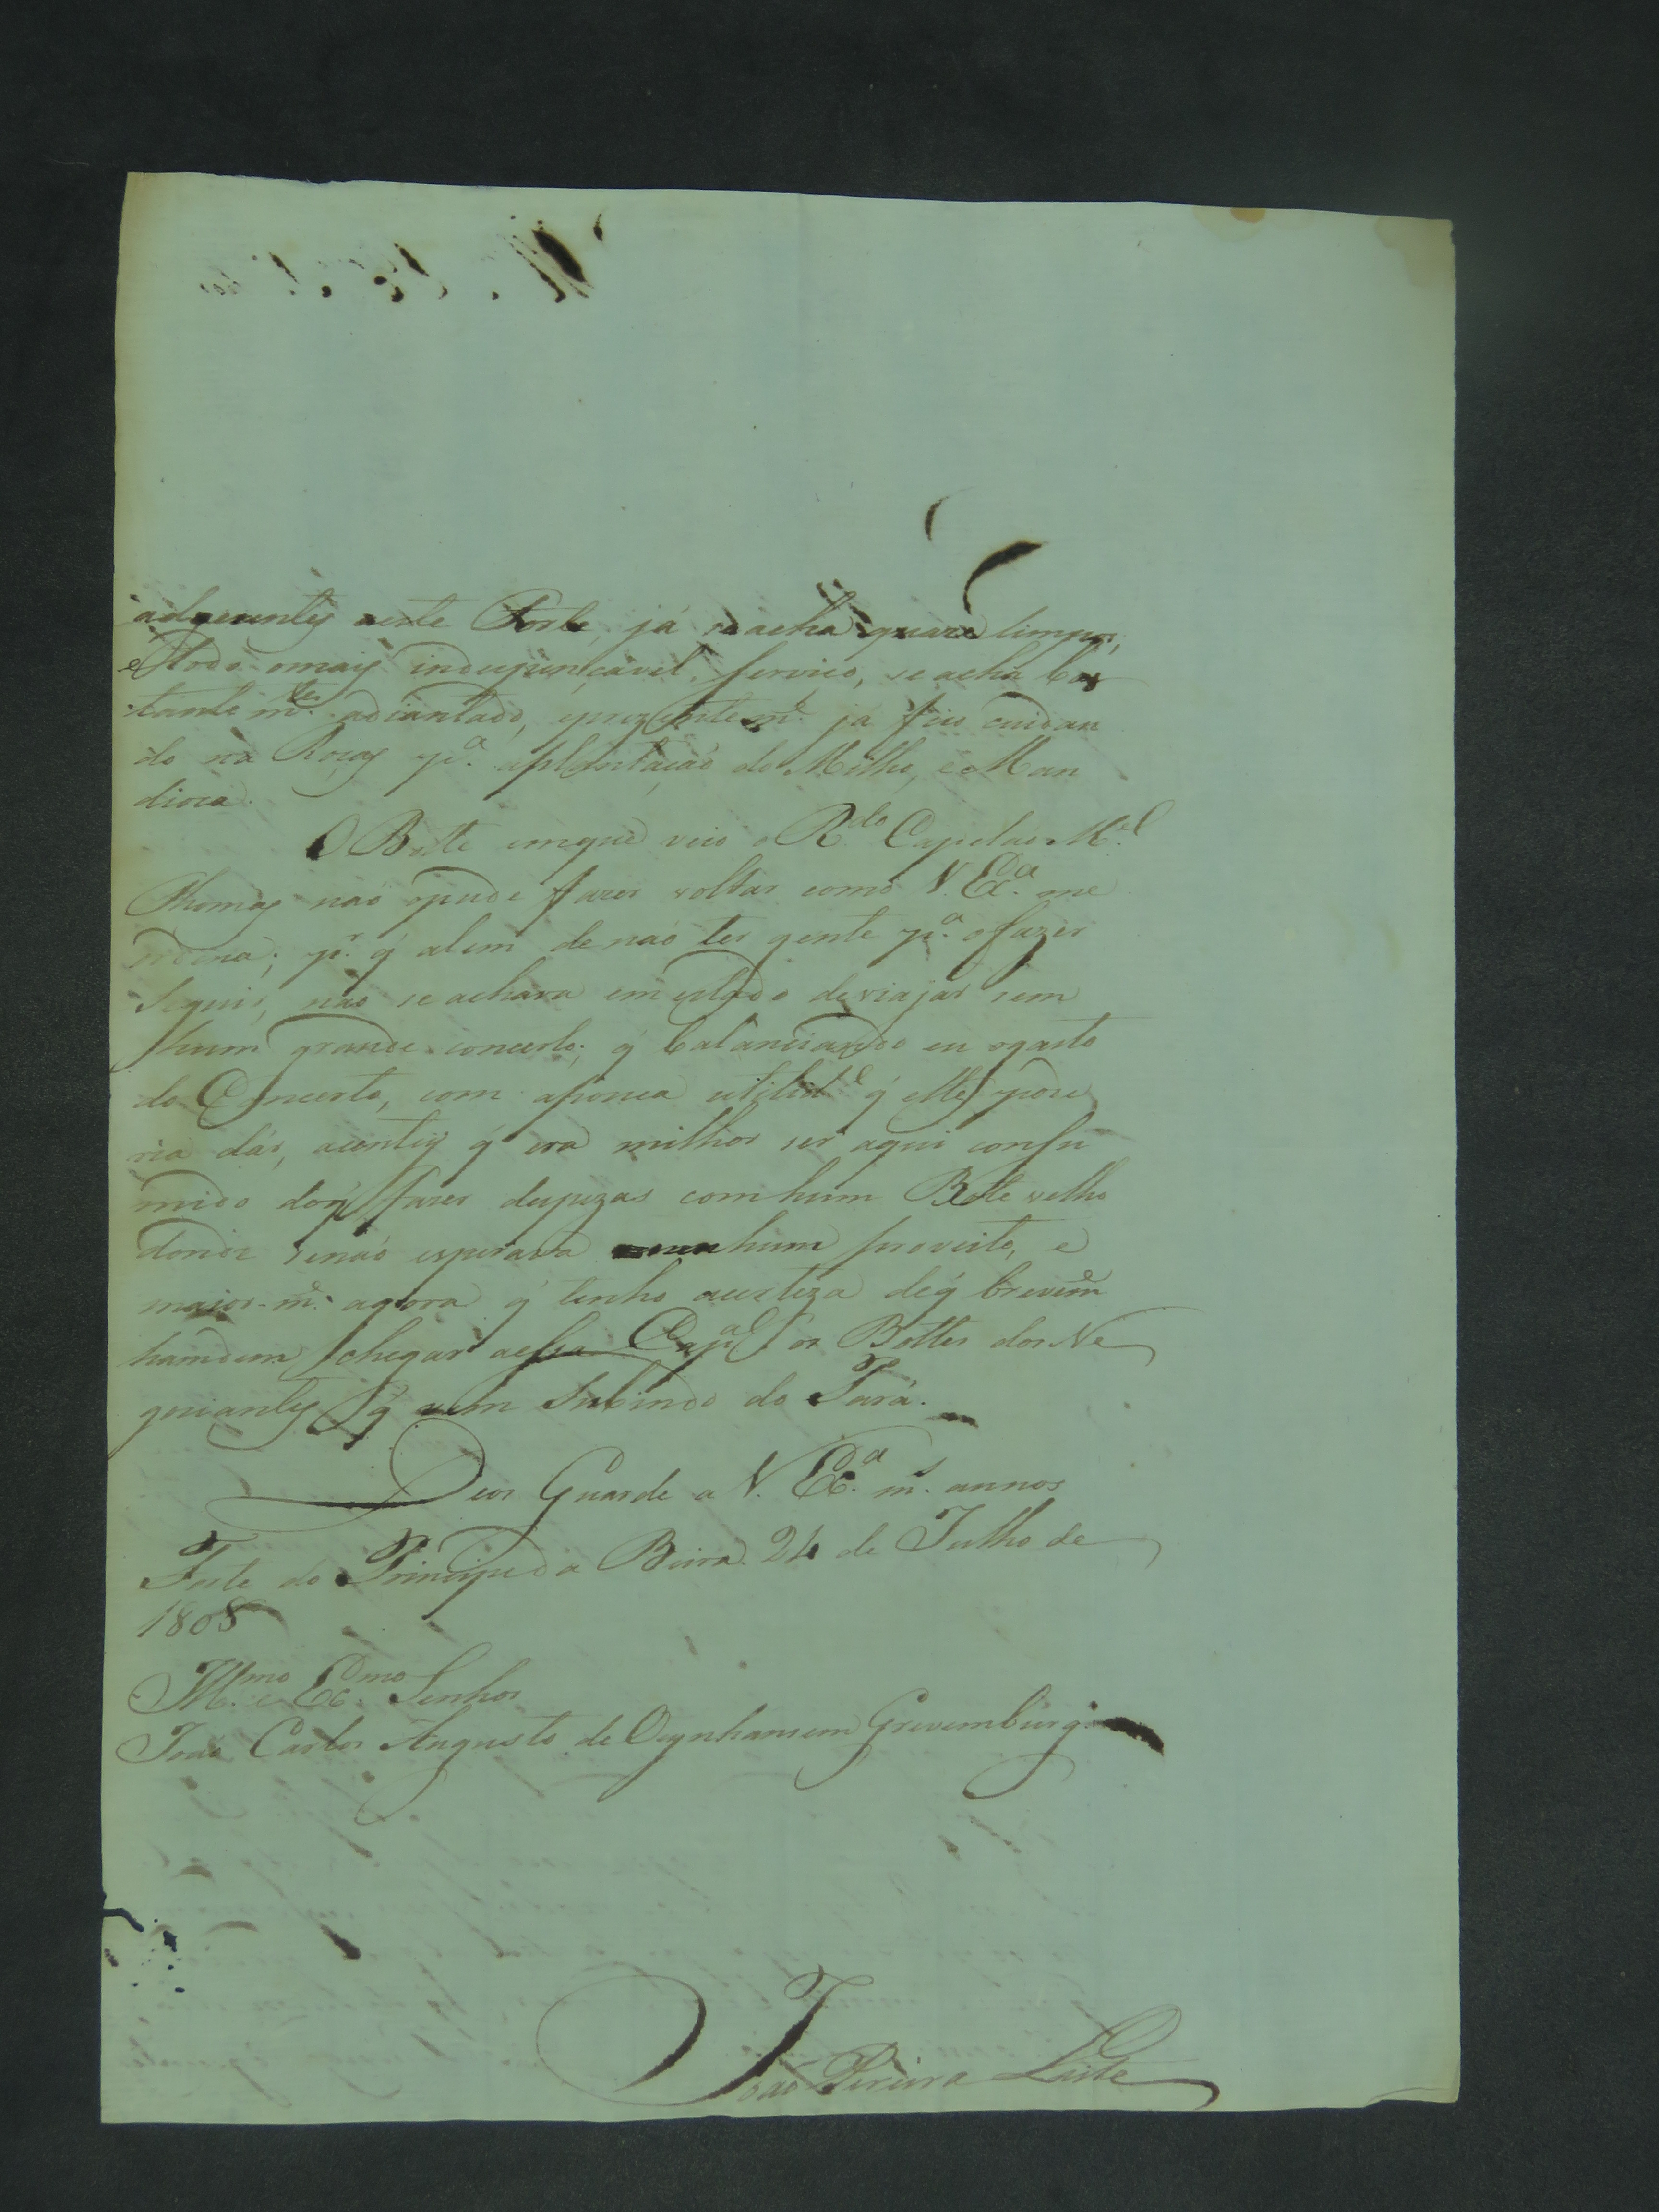 adgecentes aeste Forte, já se acha quaze limpo,
e todo omais indespençavel serviço, se acha bas
tante m.te adiantado, eprezentem.e já fico cuidan
do na Roças p.a aplantação do Milho, e Man
dioca.
O Botte emque veio o R.do Capelao M.el
Thomas não opude fazer voltar como V. Ex.a me
ordena; p.r q' alem de não ter gente p.a ofazer
seguir, não se achava em estado de viajar sem
hum grande concerto; q' balanciando eu ogasto
do Concerto, com apouca utilid.e q' elle pode
ria dár, acentey q' era milhor ser aqui consu
mido doq' fazer despezas com hum Bote velho
donde senão esperava nenhum proveito, e
maior-m.e agora q' tenho acerteza deq' brevem.e
hamdem chegar aessa Cap.al os Bottes dos Ne
gociantes q' vem Subindo do Pará.
Deos Guarde a V. Ex.a m.s annos
Forte do Principe da Beira 24 de Julho de
1808
Ill.mo e Ex.mo Senhor
Joao Carlos Augusto de Oeynhausem Grevemburg
João Pereira Leite